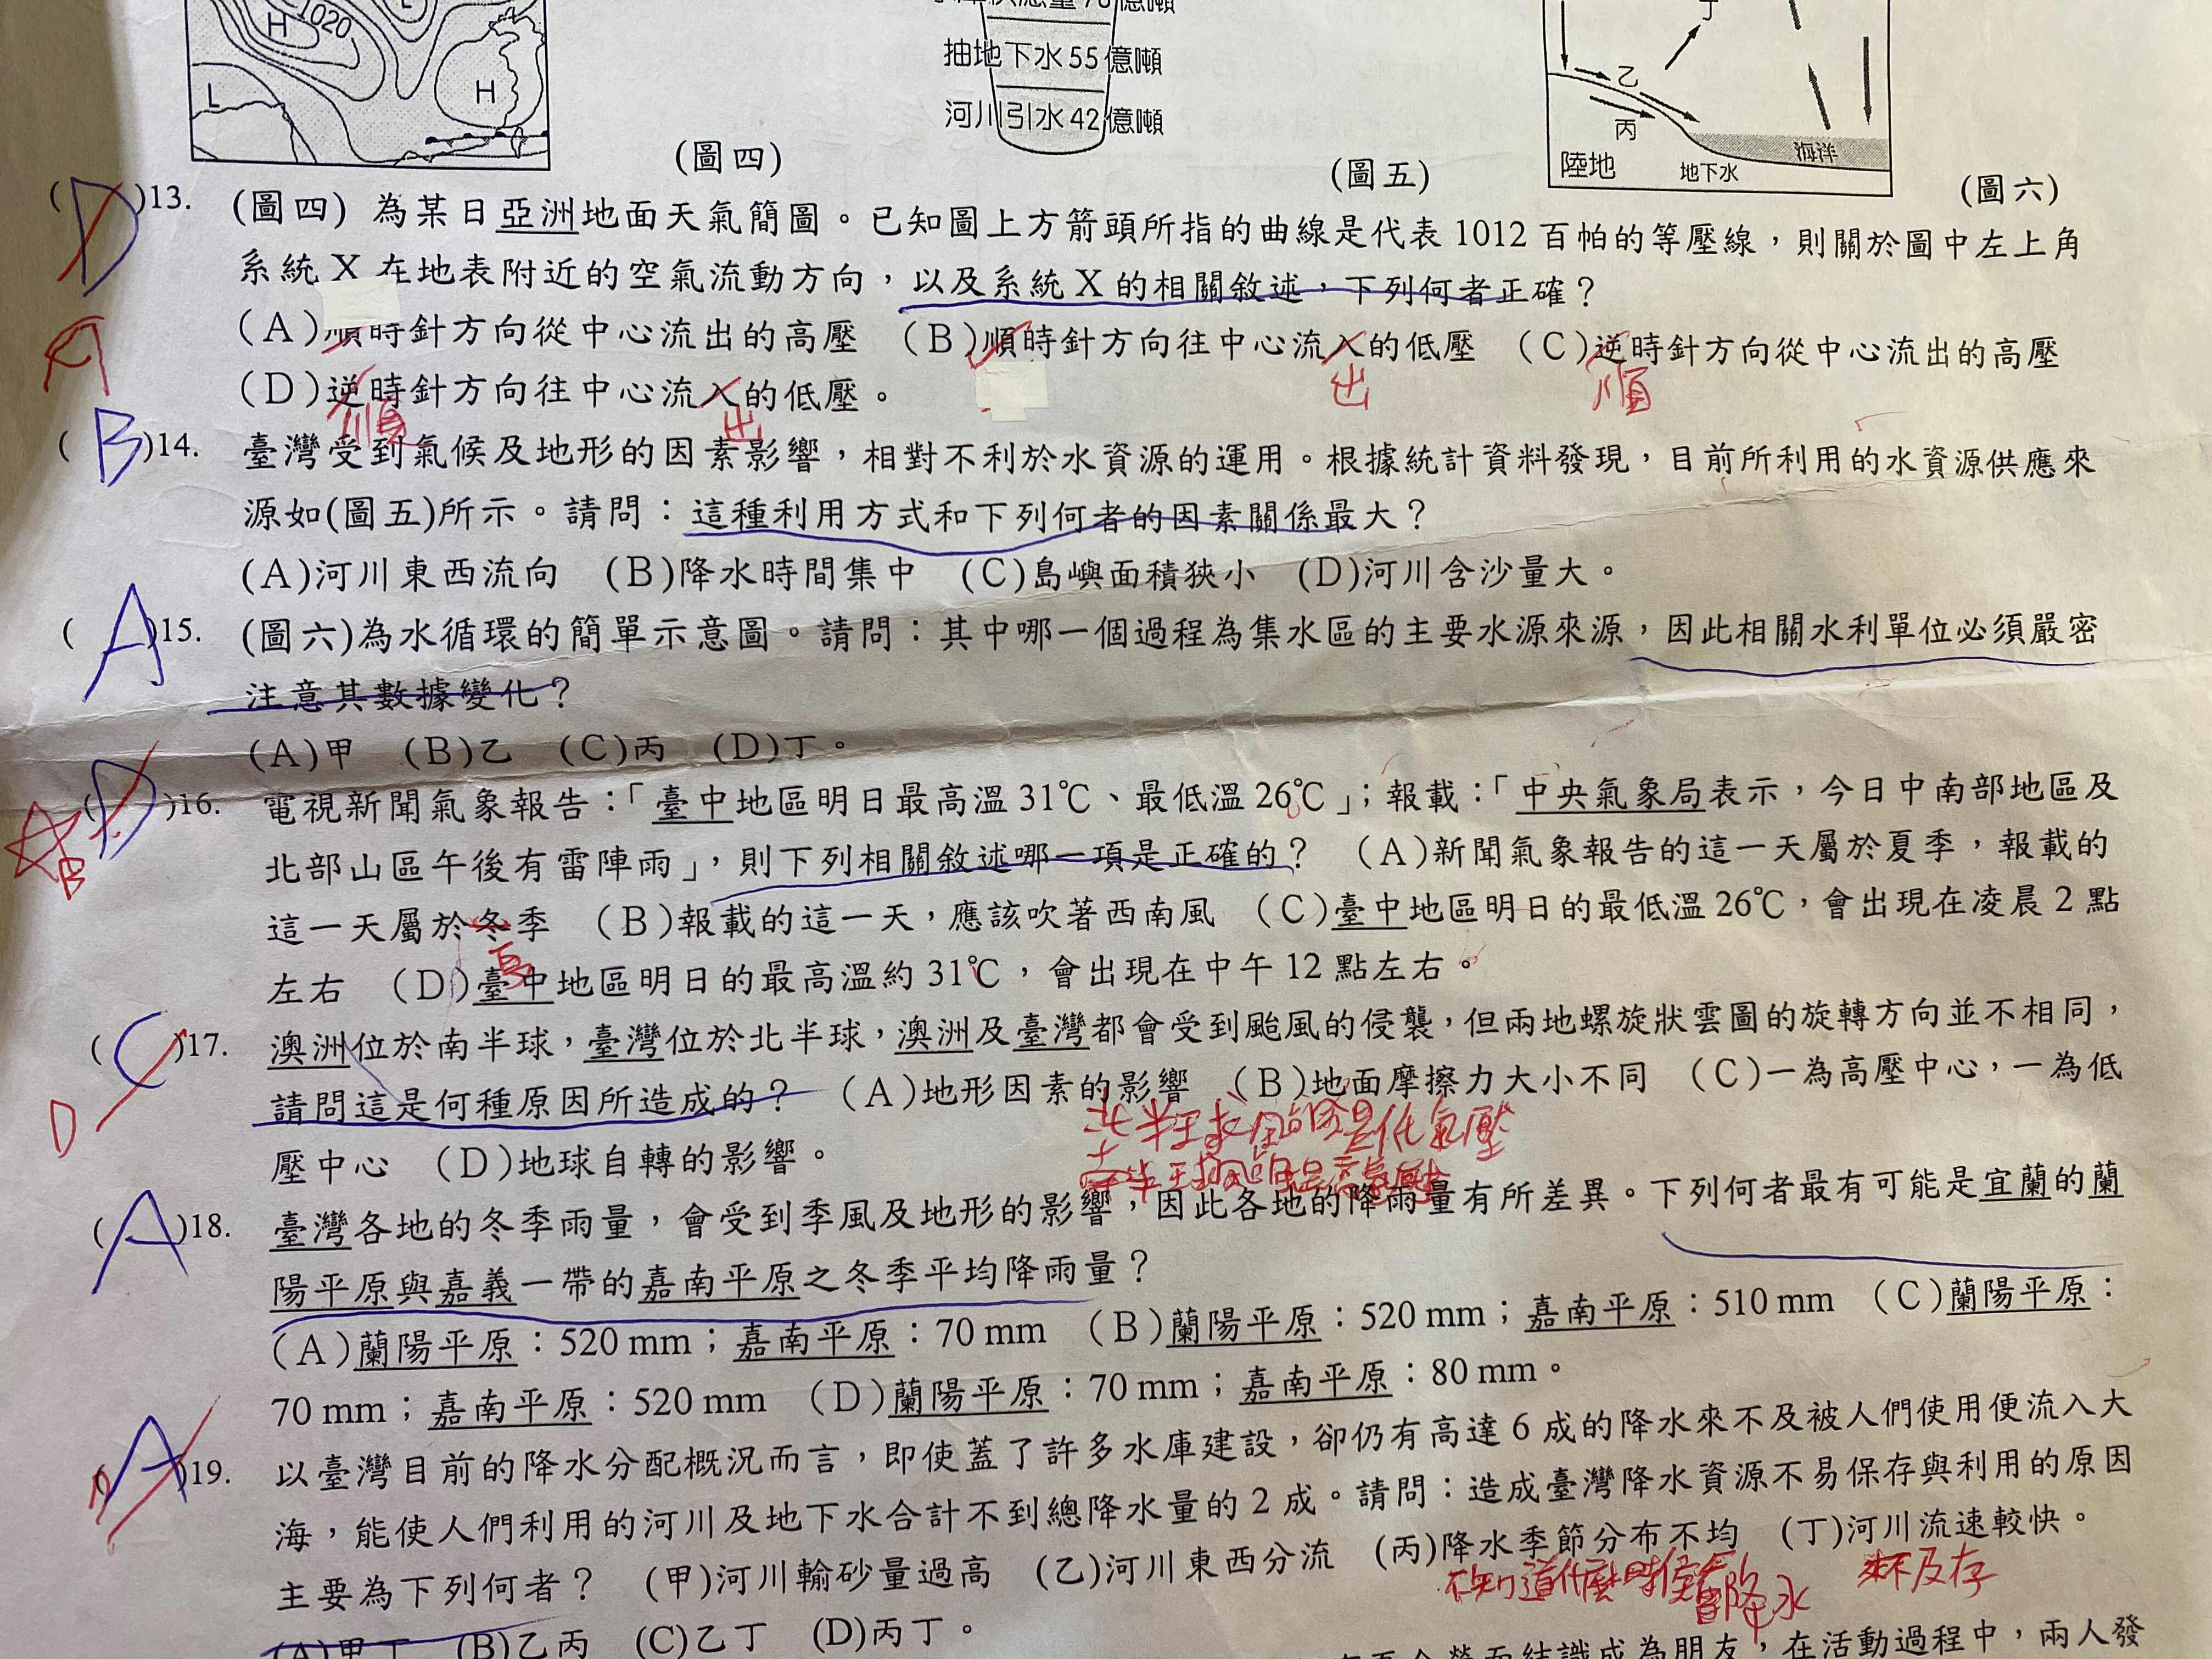 H 1020
L
H
L
抽地下水55億噸
河川引水42億噸
丁
乙
丙
陸地
地下水
海洋
(圖四)
(圖五)
(圖六)
(D)13. (圖四) 為某日亞洲地面天氣簡圖。已知圖上方箭頭所指的曲線是代表 1012 百帕的等壓線，則關於圖中左上角
系統 X 在地表附近的空氣流動方向，以及系統 X 的相關敘述，下列何者正確？
(A)順時針方向從中心流出的高壓 (B)順時針方向往中心流入的低壓 (C)逆時針方向從中心流出的高壓
出 順
(D)逆時針方向往中心流入的低壓。
順 出
(B)14. 臺灣受到氣候及地形的因素影響，相對不利於水資源的運用。根據統計資料發現，目前所利用的水資源供應來
源如(圖五)所示。請問：這種利用方式和下列何者的因素關係最大？
(A)河川東西流向 (B)降水時間集中 (C)島嶼面積狹小 (D)河川含沙量大。
(A)15. (圖六)為水循環的簡單示意圖。請問：其中哪一個過程為集水區的主要水源來源，因此相關水利單位必須嚴密
注意其數據變化？
(A)甲 (B)乙 (C)丙 (D)丁。
(D)16. 電視新聞氣象報告：「臺中地區明日最高溫 31℃、最低溫 26℃」；報載：「中央氣象局表示，今日中南部地區及
B
北部山區午後有雷陣雨」，則下列相關敘述哪一項是正確的？ (A)新聞氣象報告的這一天屬於夏季，報載的
這一天屬於冬季 (B)報載的這一天，應該吹著西南風 (C)臺中地區明日的最低溫 26℃，會出現在凌晨 2 點
夏
左右 (D)臺中地區明日的最高溫約 31℃，會出現在中午 12 點左右。
(C)17. 澳洲位於南半球，臺灣位於北半球，澳洲及臺灣都會受到颱風的侵襲，但兩地螺旋狀雲圖的旋轉方向並不相同，
D
請問這是何種原因所造成的？ (A)地形因素的影響 (B)地面摩擦力大小不同 (C)一為高壓中心，一為低
壓中心 (D)地球自轉的影響。
(A)18. 臺灣各地的冬季雨量，會受到季風及地形的影響，因此各地的降雨量有所差異。下列何者最有可能是宜蘭的蘭
陽平原與嘉義一帶的嘉南平原之冬季平均降雨量？
(A)蘭陽平原：520 mm；嘉南平原：70 mm (B)蘭陽平原：520 mm；嘉南平原：510 mm (C)蘭陽平原：
70 mm；嘉南平原：520 mm (D)蘭陽平原：70 mm；嘉南平原：80 mm。
(A)19. 以臺灣目前的降水分配概況而言，即使蓋了許多水庫建設，卻仍有高達 6 成的降水來不及被人們使用便流入大
海，能使人們利用的河川及地下水合計不到總降水量的 2 成。請問：造成臺灣降水資源不易保存與利用的原因
主要為下列何者？ (甲)河川輸砂量過高 (乙)河川東西分流 (丙)降水季節分布不均 (丁)河川流速較快。
不知道什麼時候會降水 來不及存
(A)甲丁 (B)乙丙 (C)乙丁 (D)丙丁。
而結識成為朋友，在活動過程中，兩人發